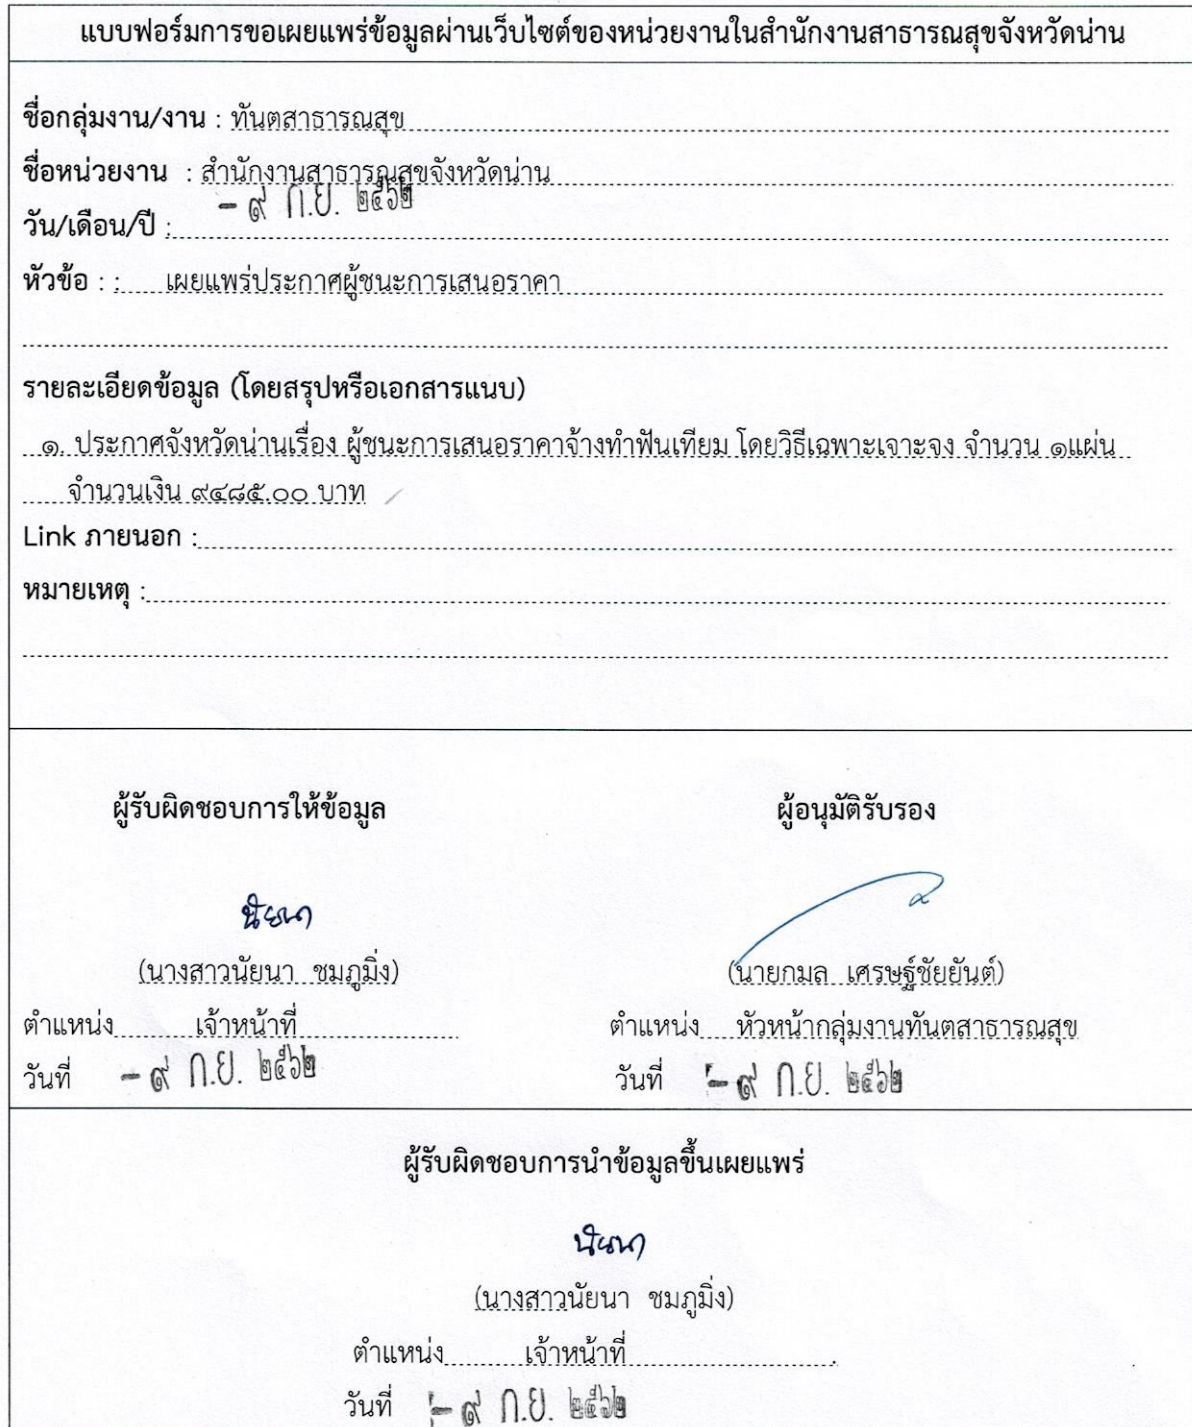 แบบฟอร์มการขอเผยแพร่ข้อมูลผ่านเว็บไซต์ของหน่วยงานในสำนักงานสาธารณสุขจังหวัดน่าน
ชื่อกลุ่มงาน/งาน : ทันตสาธารณสุข
ชื่อหน่วยงาน : สำนักงานสาธารณสุขจังหวัดน่าน
วัน/เดือน/ปี : - ๙ ก.ย. ๒๕๖๒
หัวข้อ : : เผยแพร่ประกาศผู้ชนะการเสนอราคา
รายละเอียดข้อมูล (โดยสรุปหรือเอกสารแนบ)
๑. ประกาศจังหวัดน่านเรื่อง ผู้ชนะการเสนอราคาจ้างทำฟันเทียม โดยวิธีเฉพาะเจาะจง จำนวน ๑แผ่น
จำนวนเงิน ๙๔๘๕.๐๐ บาท
Link ภายนอก :
หมายเหตุ :
ผู้รับผิดชอบการให้ข้อมูล ผู้อนุมัติรับรอง
นัยนา
(นางสาวนัยนา ชมภูมิ่ง) (นายกมล เศรษฐ์ชัยยันต์)
ตำแหน่ง เจ้าหน้าที่ ตำแหน่ง หัวหน้ากลุ่มงานทันตสาธารณสุข
วันที่ - ๙ ก.ย. ๒๕๖๒ วันที่ - ๙ ก.ย. ๒๕๖๒
ผู้รับผิดชอบการนำข้อมูลขึ้นเผยแพร่
นัยนา
(นางสาวนัยนา ชมภูมิ่ง)
ตำแหน่ง เจ้าหน้าที่
วันที่ - ๙ ก.ย. ๒๕๖๒